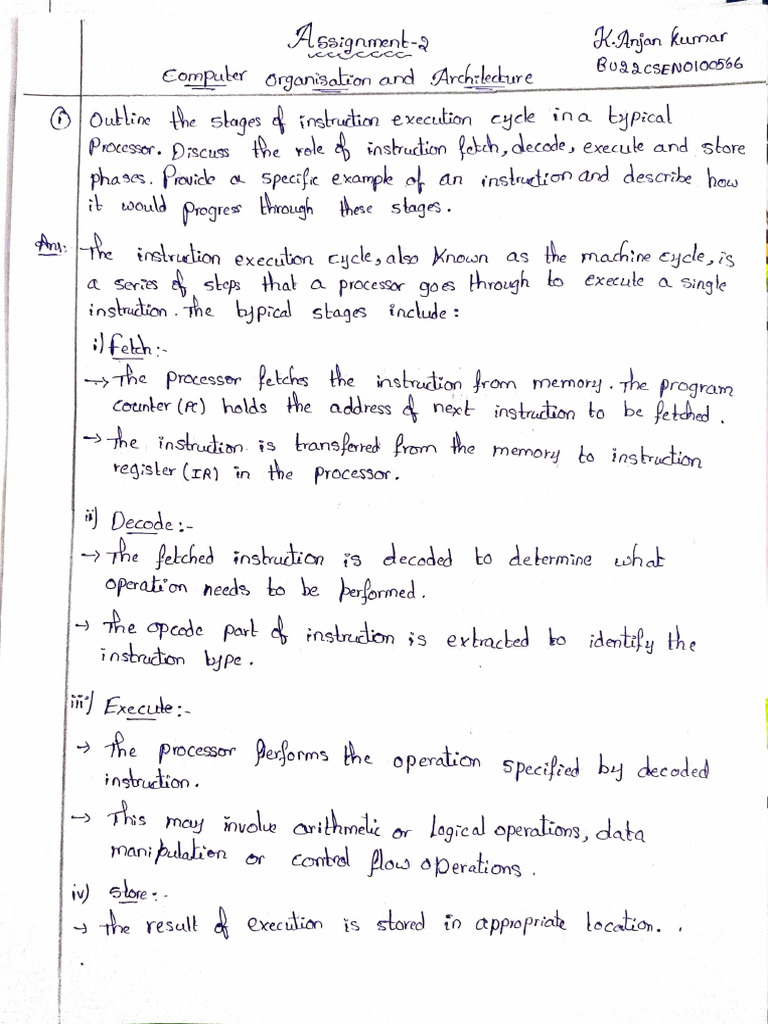 Assignment-2
K.Anjan Kumar
BU22CSEN0100566
Computer Organisation and Architecture
① Outline the stages of instruction execution cycle in a typical
Processor. Discuss the role of instruction fetch, decode, execute and store
phases. Provide a specific example of an instruction and describe how
it would progress through these stages.
Ans: The instruction execution cycle, also known as the machine cycle, is
a series of steps that a processor goes through to execute a single
instruction. The typical stages include:
i) Fetch:-
→ The processor fetches the instruction from memory. The program
counter (PC) holds the address of next instruction to be fetched.
→ The instruction is transferred from the memory to instruction
register (IR) in the processor.
ii) Decode:-
→ The fetched instruction is decoded to determine what
operation needs to be performed.
→ The opcode part of instruction is extracted to identify the
instruction type.
iii) Execute:-
→ The processor performs the operation specified by decoded
instruction.
→ This may involve arithmetic or logical operations, data
manipulation or control flow operations.
iv) Store:-
→ The result of execution is stored in appropriate location.